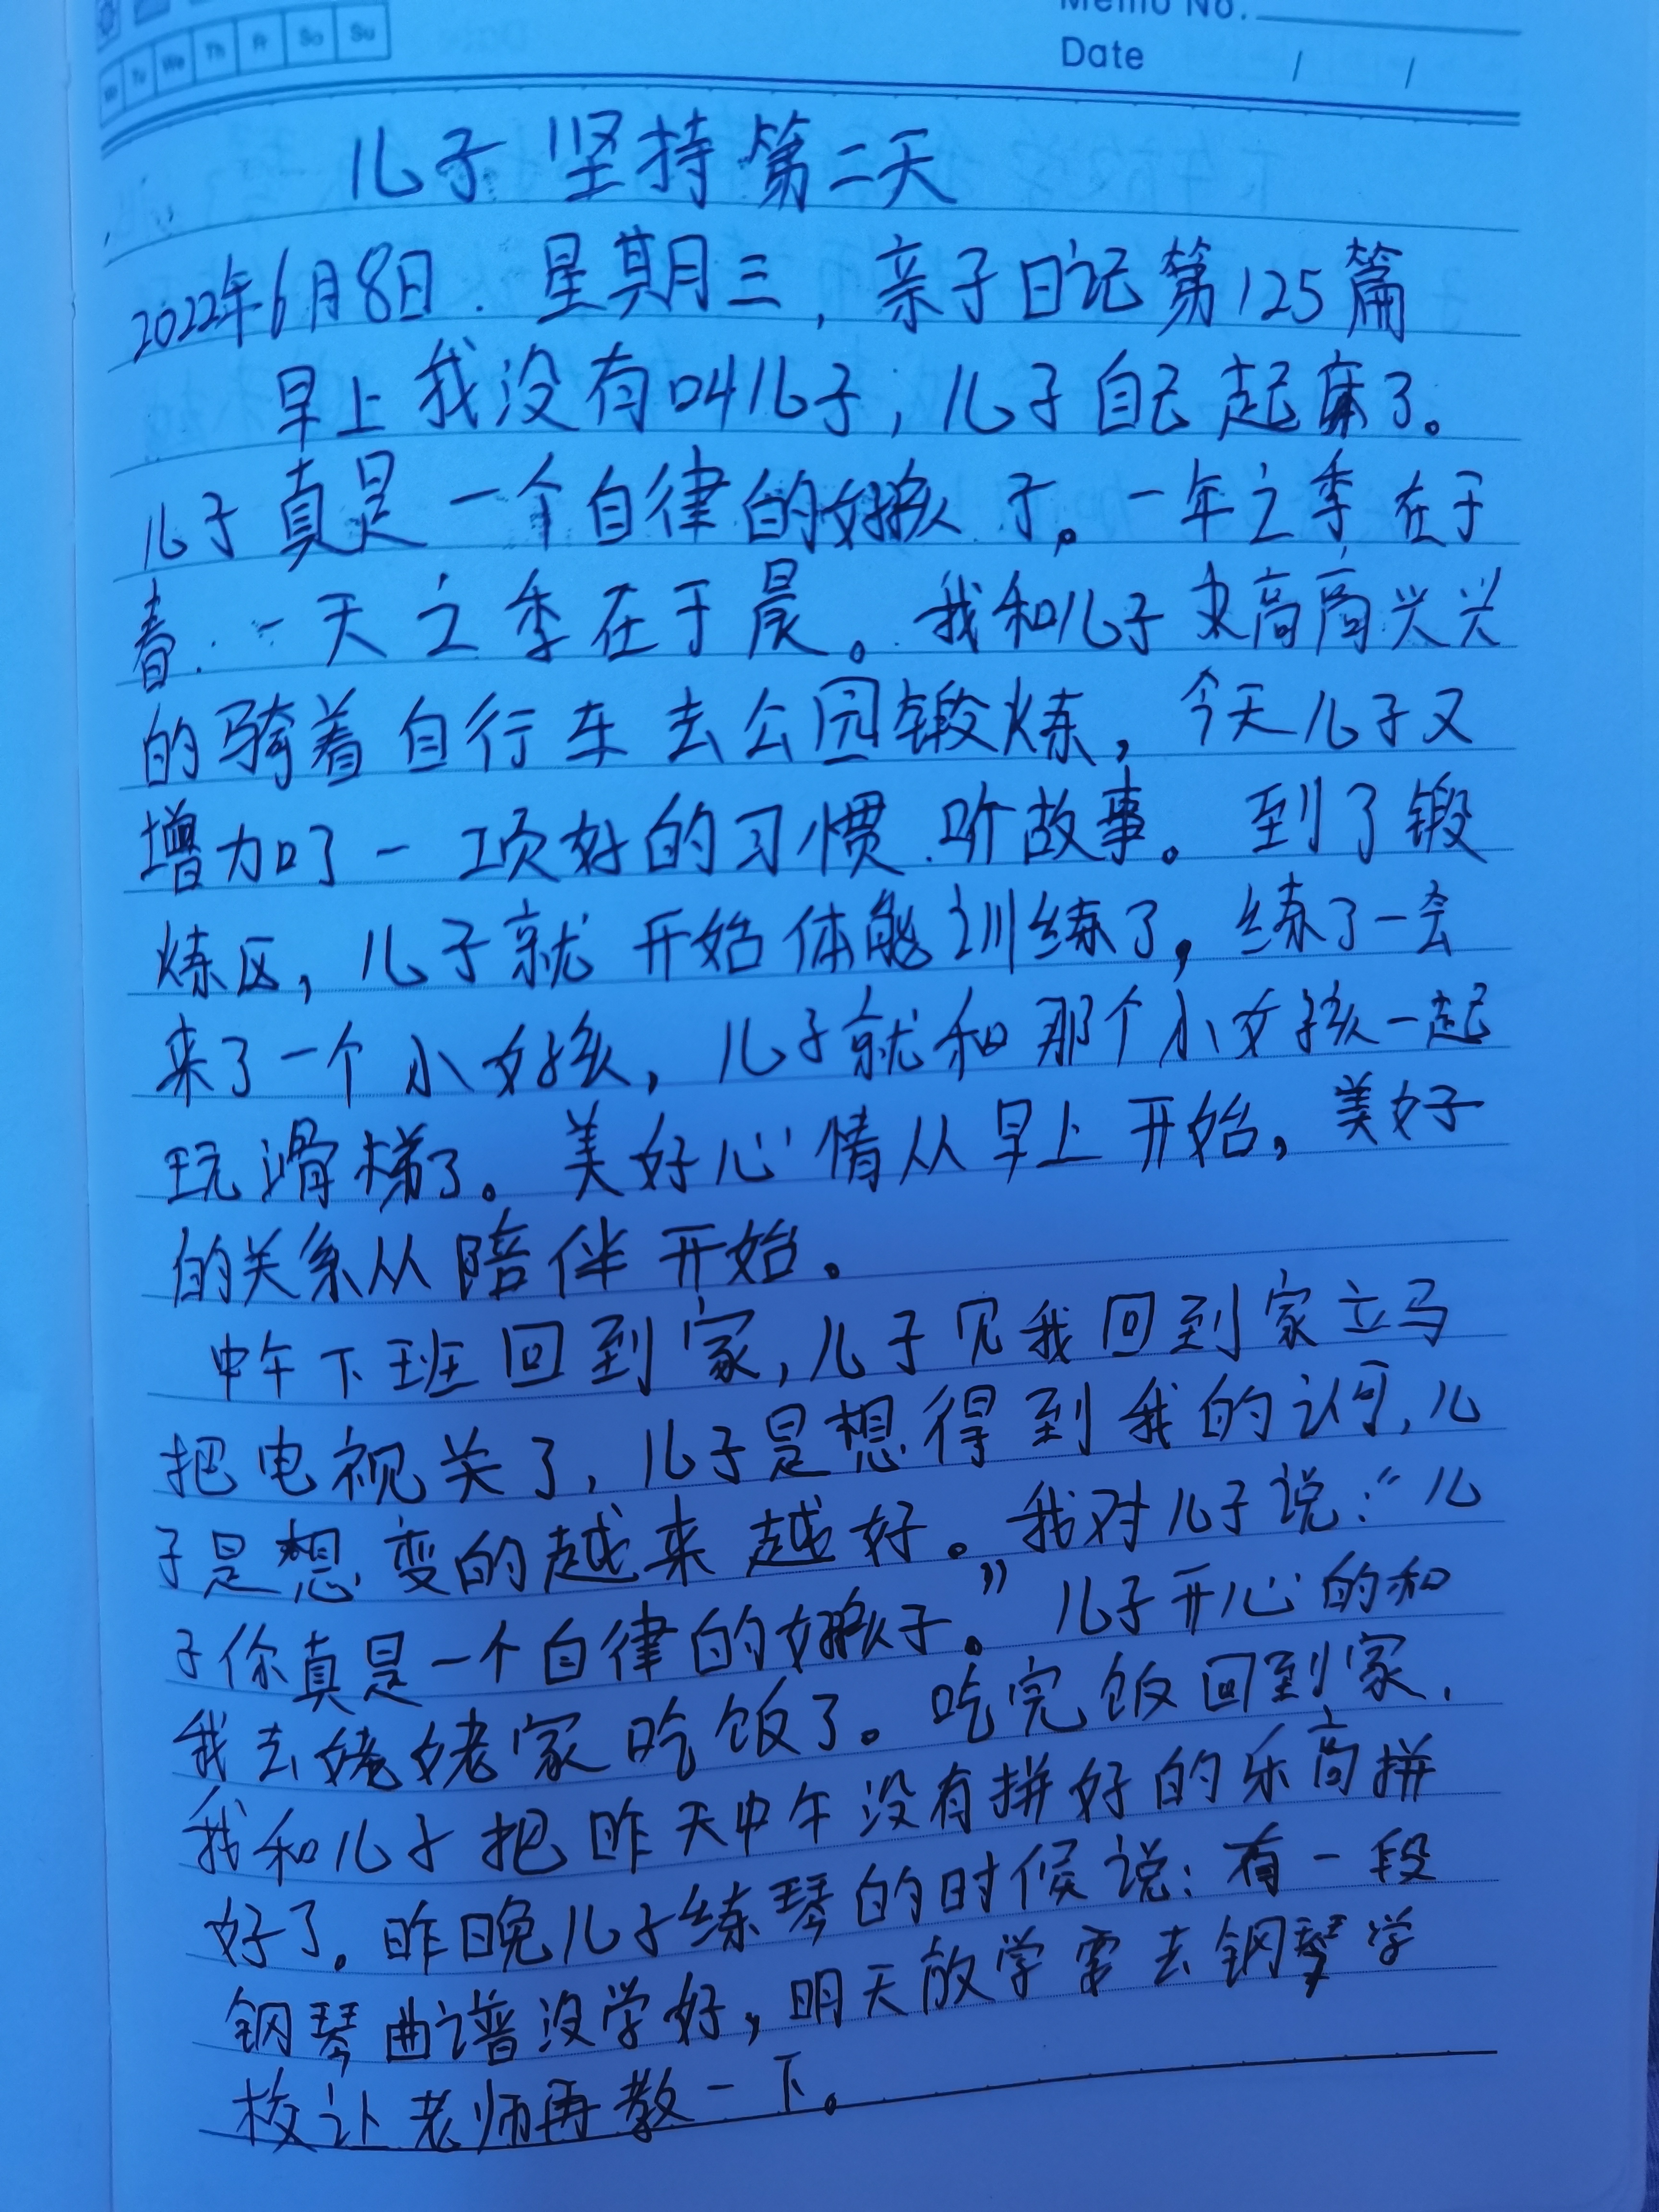 Memo No.
Mo Tu We Th Fr Sa Su
Date / /
儿子坚持第二天
2022年6月8日.星期三,亲子日记第125篇
早上我没有叫儿子,儿子自己起床了。
儿子真是一个自律的好孩子。一年之季在于
春.一天之季在于晨。我和儿子高高兴兴
的骑着自行车去公园锻炼,今天儿子又
增加了一项好的习惯.听故事。到了锻
炼区,儿子就开始体能训练了,练了一会
来了一个小女孩,儿子就和那个小女孩一起
玩滑梯了。美好心情从早上开始,美好
的关系从陪伴开始。
中午下班回到家,儿子见我回到家立马
把电视关了,儿子是想得到我的认可,儿
子是想变的越来越好。我对儿子说:“儿
子你真是一个自律的好孩子。”儿子开心的和
我去姥姥家吃饭了。吃完饭回到家.
我和儿子把昨天中午没有拼好的乐高拼
好了。昨晚儿子练琴的时候说:有一段
钢琴曲谱没学好,明天放学要去钢琴学
校让老师再教一下。